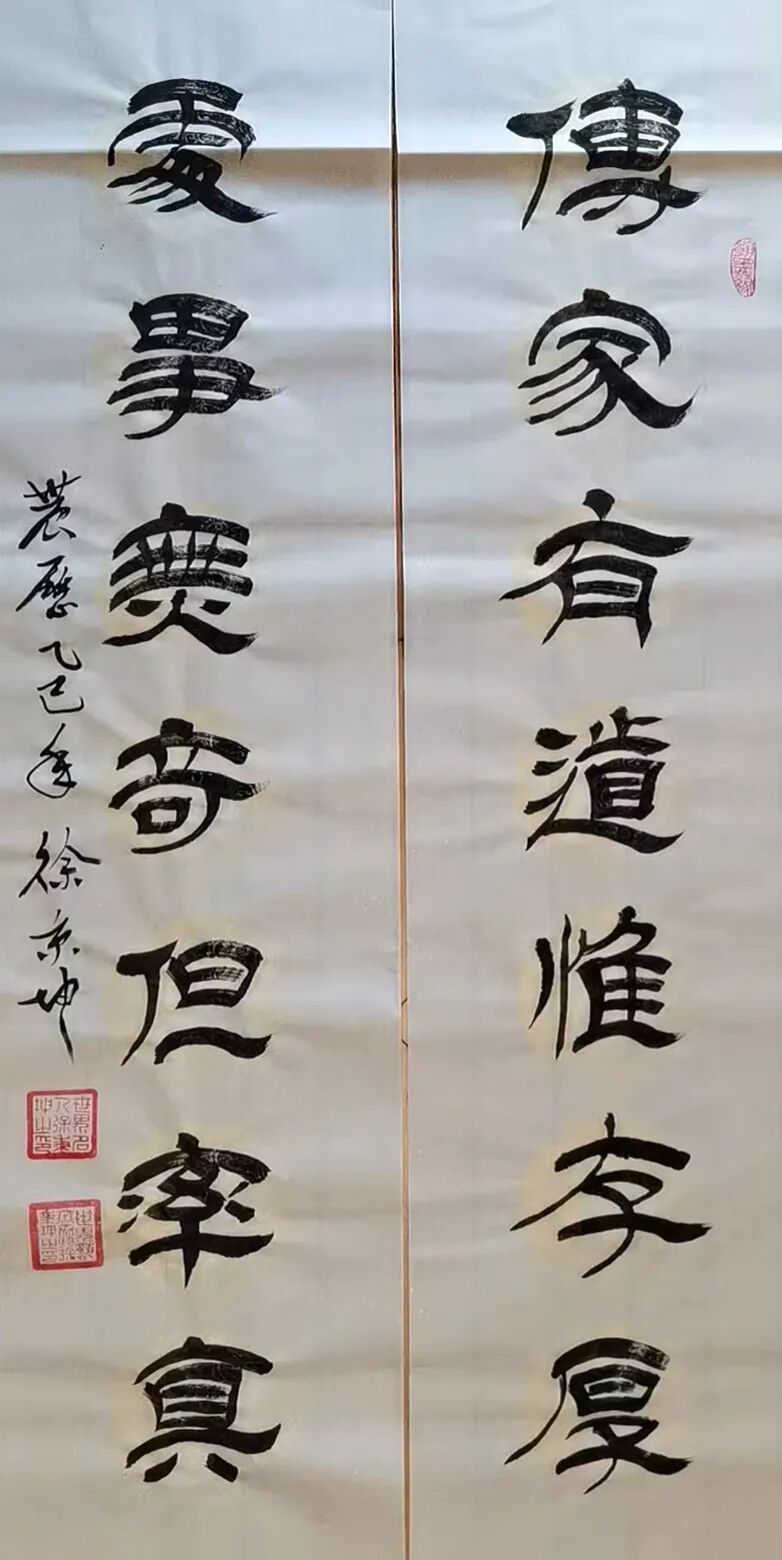 傳家有道惟存厚
處事無奇但率真
農歷乙巳年徐京坤